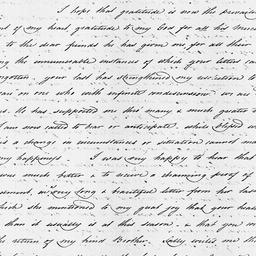 I hope that gratitude is now the prevailin
nt of my heart, gratitude to my God for all his merci
to the dear friends he has given me for all their
ng the innumerable instances of which your letter ca
rgotten, your last has strengthened my
ear on one who with infinite condescension
. He has supported me this many & much greater
I am now called to bear or anticipate. while blessed w
is a change in circumstances or situation cannot mu
my happiness. I was happy to hear that
was much better & to receive a charming proof of
ement, a very long & beautiful letter from her las
hich she mentioned to my great joy that your heal
than it usually is at this season. & that you w
the return of my kind Brother. Sally writes me th